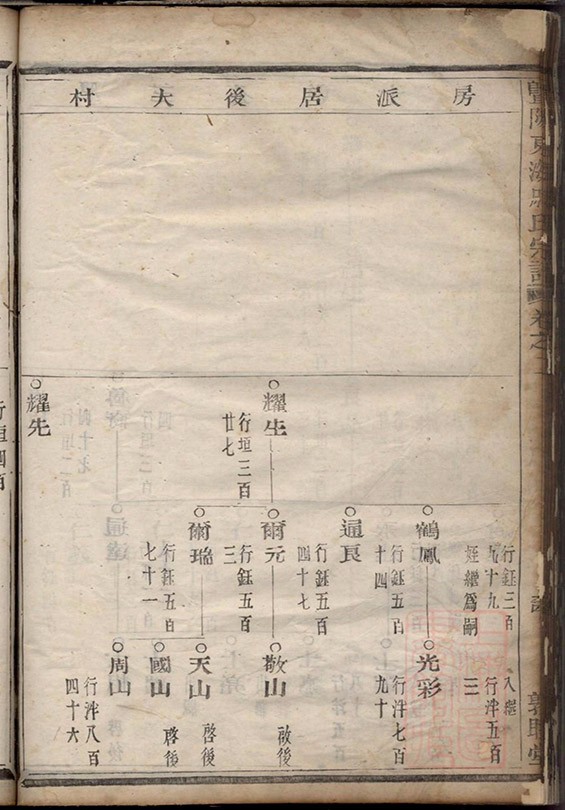 房派居後大村
行鈺三百
九十九
姪繼為嗣
入繼
行泮五百
三
鶴鳳
行鈺五百
十四
光彩
行泮七百
九十
通良
行鈺五百
四十七
耀生
行垣三百
廿七
爾元
行鈺五百
三
敬山
啟後
爾瑞
行鈺五百
七十一
天山
啓後
國山
啓後
周山
行泮八百
四十六
耀先